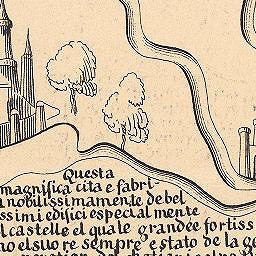 Questa
magnifica cita e fabri-
nobilissimamente de bel
ssimi edifici especialmente
l castelle el quale grande e fortiss
no el suo re sempre e stato de la ge